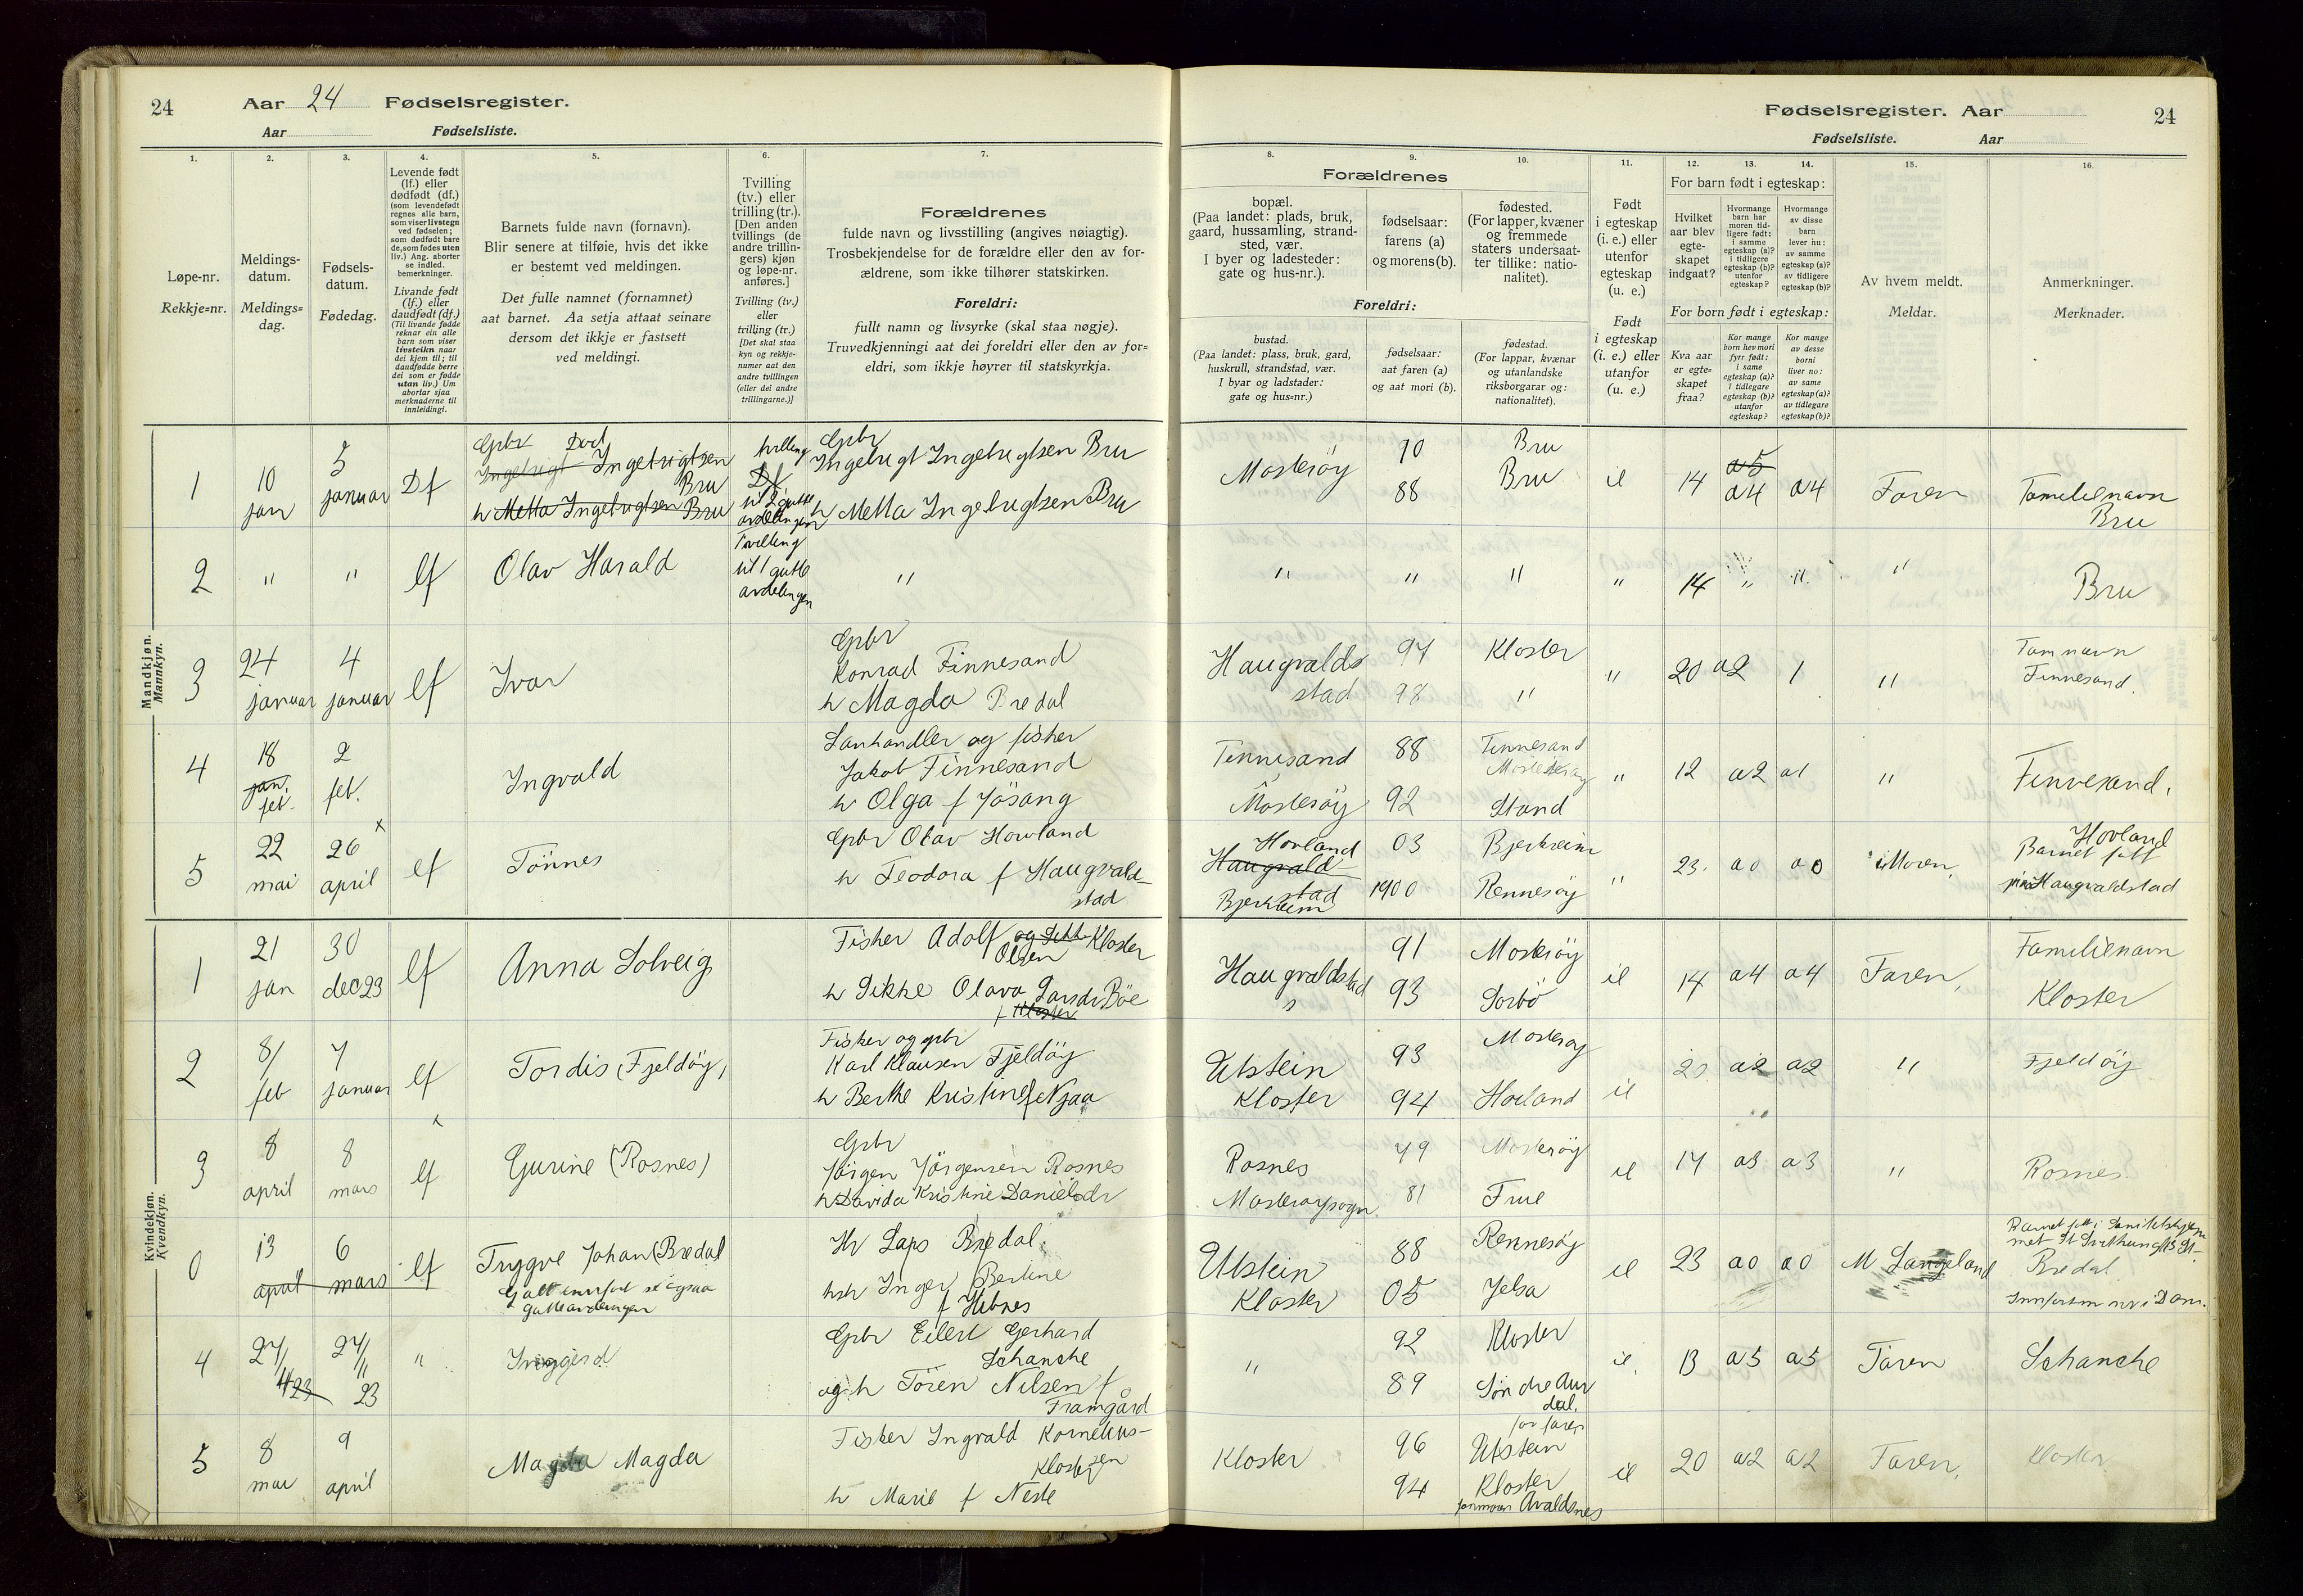 24
Aar 24 Fødselsregister.
Aar Fødselsliste.
1. 2. 3. 4. 5. 6. 7.
Løpe-nr.
Rekkje=nr.
Meldings-
datum.
Meldings=
dag.
Fødsels-
datum.
Fødedag.
Levende født
(lf.) eller
dødfødt (df.)
(som levendefødt
regnes alle barn,
som viser livstegn
ved fødselen;
som dødfødt bare
de, som fødes uten
liv.) Ang. aborter
se indled.
bemerkninger.
Livande født
(lf.) eller
daudfødt (df.)
(Til livande fødde
reknar ein alle
barn som viser
livsteikn naar
dei kjem til; til
daudfødde berre
dei som er fødde
utan liv.) Um
abortar sjaa
merknaderne til
innleidingi.
Barnets fulde navn (fornavn).
Blir senere at tilføie, hvis det ikke
er bestemt ved meldingen.
Det fulle namnet (fornamnet)
aat barnet. Aa setja attaat seinare
dersom det ikkje er fastsett
ved meldingi.
Tvilling
(tv.) eller
trilling (tr.).
[Den anden
tvillings (de
andre trillin-
gers) kjøn
og løpe-nr.
anføres.]
Tvilling (tv.)
eller
trilling (tr.)
[Det skal staa
kyn og rekkje-
numer aat den
andre tvillingen
(eller dei andre
trillingarne.)]
Forældrenes
fulde navn og livsstilling (angives nøiagtig).
Trosbekjendelse for de forældre eller den av for-
ældrene, som ikke tilhører statskirken.
Foreldri:
fullt namn og livsyrke (skal staa nøgje).
Truvedkjenningi aat dei foreldri eller den av for=
eldri, som ikkje høyrer til statskyrkja.
Fødselsregister. Aar 24
Fødselsliste. Aar
8. 9. 10. 11. 12. 13. 14. 15. 16.
Forældrenes
bopæl.
(Paa landet: plads, bruk,
gaard, hussamling, strand-
sted, vær.
I byer og ladesteder:
gate og hus-nr.).
fødselsaar:
farens (a)
og morens (b).
fødested.
(For lapper, kvæner
og fremmede
staters undersaat-
ter tillike: natio-
nalitet).
Foreldri:
bustad.
(Paa landet: plass, bruk, gard,
huskrull, strandstad, vær.
I byar og ladstader:
gate og hus=nr.)
fødselsaar:
aat faren (a)
og aat mori (b).
fødestad.
(For lappar, kvænar
og utanlandske
riksborgarar og:
nationalitet).
Født
i egteskap
(i. e.) eller
utenfor
egteskap
(u. e.)
Født
i egteskap
(i. e.) eller
utanfor
(u. e.)
For barn født i egteskap:
Hvilket
aar blev
egte-
skapet
indgaat?
Hvormange
barn har
moren tid-
ligere født:
i samme
egteskap (a)?
i tidligere
egteskap (b)?
utenfor
egteskap?
Hvormange
av disse
barn
lever nu:
av samme
egteskap (a)?
av tidligere
egteskap (b)?
For born født i egteskap:
Kva aar
er egte=
skapet
fraa?
Kor mange
born hev mori
fyrr født:
i same
egteskap (a)?
i tidlegare
egteskap (b)?
utanfor
egteskap?
Kor mange
av desse
borni
liver no:
av same
egteskap (a)?
av tidlegare
egteskap (b)?
Av hvem meldt.
Meldar.
Anmerkninger.
Merknader.
Mandkjøn.
Mannkyn.
1 10 jan 5 januar Df
Gpbr Død
Ingebrigt Ingebrigtsen
Bru
h Metta Ingebrigtsen Bru
tvilling
Df
til 2 gutte
avdelingen
Gpbr
Ingebrigt Ingebrigtsen Bru
h Metta Ingebrigtsen Bru
Mosterøy 90 Bru
88 Bru
il 14 a5 a4 a4 Faren
Familienavn
Bru
2 " " lf Olav Harald
Tvilling
til 1 gutte
avdelingen
"
" " " " 14 " " " Bru
3 24 januar 4 januar lf Ivar
Gpbr
Konrad Finnesand
h Magda Bredal
Haugvalds
stad
97 Kloster
98 "
" 20 a2 1 "
Fam navn
Finnesand.
4 18 jan. feb. 2 feb. Ingvald
Lanhandler og fisher
Jakob Finnesand
h Olga f Jösang
Finnesand
Mosterøy
88 Finnesand
Mosterøy
92 Stand
" 12 a2 a1 " Finnesand.
5 22 mai 26 april x lf Tönnes
Gpbr Olav Howland
h Teodora f Haugvald-
stad
Hovland
Haugvald-
stad
Bjerkreim
03 Bjerkreim
1900 Rennesöy
" 23. a0 a0 Moren.
Hovland
Barnet født
Haugvaldstad
Kvindekjøn.
Kvendkyn.
1 21 jan 30 dec 23 lf Anna Solveig
Fisher Adolf og Sikke Kloster
Olsen
h Sikke Olava Larsdr Böe
f Kloster
Haugvaldstad
91 Mosteröy
93 Sorbö
il 14 a4 a4 Faren,
Familienavn
Kloster
2 8/ feb 7 januar lf Tordis (Fjeldöy)
Fisker og gpbr
Karl Klausen Fjeldöy
h Berthe Kristine f Njaa
Utstein
Kloster
93 Mosteröy
94 Hovland
il 20 a2 a2 " Fjeldöy
3 8 april 8 mars x lf Gurine (Rosnes)
Gpbr
Jörgen Jörgensen Rosnes
h Davida Kristine Danielsdr
Rosnes
Mosteröysogn
79 Mosteröy
81 Frue
il 17 a3 a3 " Rosnes
0 13 april 6 mars lf Trygve Johan (Bredal
Galt innført se ogsaa
gutteavdelingen
Hr Laps Bredal.
hstr Inger Bertine
f Hebnes
Utstein
Kloster
88 Rennesöy
05 Jelsa
il 23 a0 a0 M Langeland
Bredal
4 27/ 4 23 27/ 11 23 " Inggerd
Gpbr Eilert Gerhard
Schanche
og h Tören Nilsen f
Framgård
"
92 Kloster
89 Söndre Aur
dal.
il. 13 a5 a5 Faren Schanche
5 8 mai 9 april Magda Magda
Fisker Ingvald Kornelius-
sen
Kloster
h Marie f Nesse
Kloster
for faren
96 Utstein
94 Kloster
for moren Avaldsnes
il 20 a2 a2 Faren, Kloster